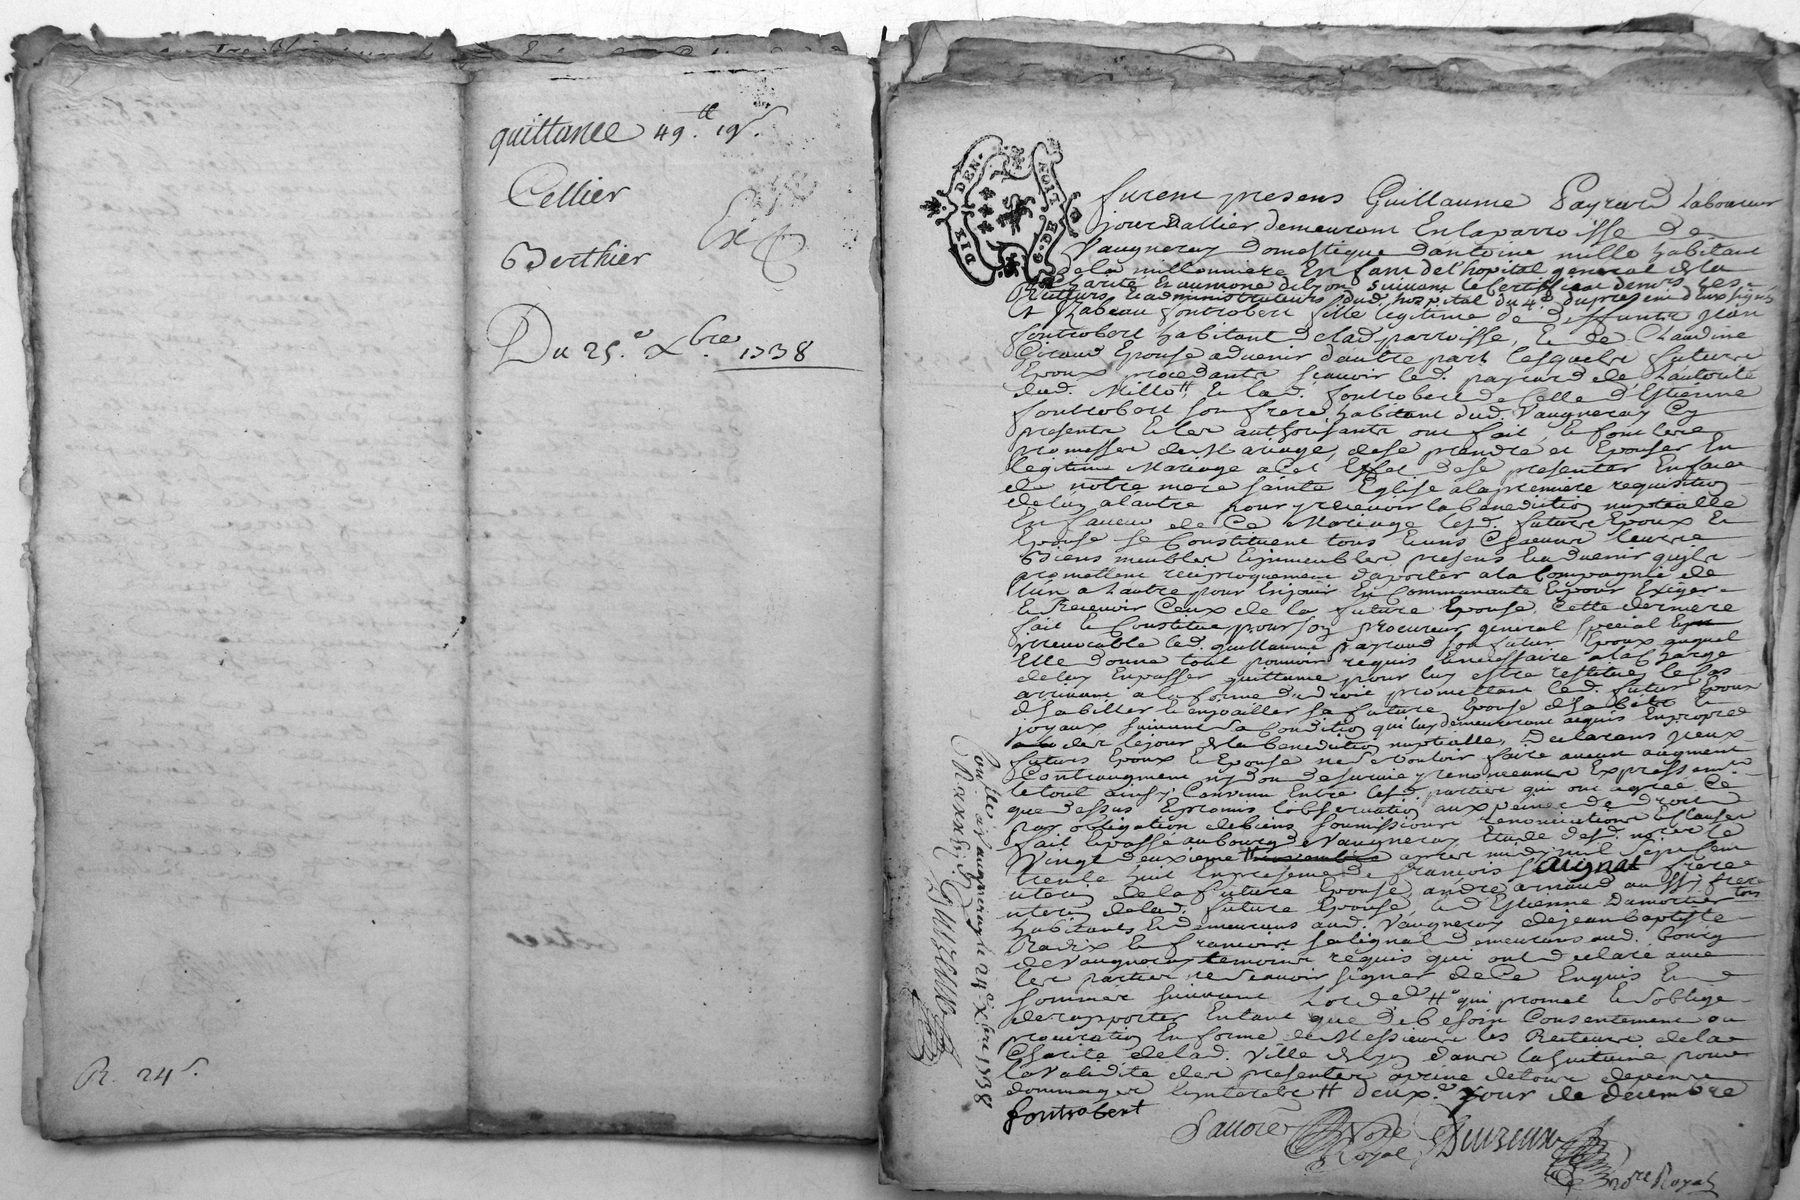 quittance 49.tt 19s.
Cellier
Berthier
Ex
Du 25.e xbre. 1738
R. 24s.
G. DE LION
DIXI DEN.
furent presens Guillaume Payrard Laboureur
journallier demeurant En la parroisse de
Vaugneray domestique dantoine mille habitant
de la millonniere Enfant de l'hopital general de la
Charité Et aumone de lyon suivant le Certificat de mrs les
Recteurs Et administrateurs dud. hospital du 4e. du present deux signés
Et Izabeau fontrobert fille legitime de deffunts jean
fontrobert habitant de lad parroisse, Et de Claudine
Giraud Epouse advenir dautre part lesquels futurs
Epoux procedants scavoir led. payrard de Lautorité
dud. Millett Et lad. fontrobert de Celle d'Estienne
fontrobert son frere habitant dud. Vaugneray Cy
presents Et les authorisants ont fait Et font les
promesses de Mariage, de se prendre et Epouser En
legitime Mariage a Cet Effet de se presenter En face
de notre mere sainte Eglise a la premiere requisition
de lun a lautre pour y recevoir la benediction nuptialle
En faveur de Ce Mariage lesd. futurs Epoux Et
Epouse se Constituent tous Et uns Chacuns leurs
Biens meubles Et jmmeubles presens Et advenir quils
promettent reciproquement daporter a la Compagnie de
lun a Lautre pour En jouir En Communauté Et pour Exiger
Et Recevoir Ceux de la future Epouse, Cette derniere
fait Et Constitue pour son procureur general special Et
jrrevocable led. guillaume payrard son futur Epoux auquel
Elle donne tout pouvoir requis Et necessaire a la Charge
de luy En passer quittance pour luy estre restitués le Cas
arrivant a la forme du droit promettant led. futur Epoux
d'habiller Et enjoailler sa future Epouse d'habits Et
joyaux suivant sa Condition qui luy demeureront acquis En propre
des le jour de la benediction nuptialle, Declarans jceux
futurs Epoux Et Epouse ne Se vouloir faire aucun augment
Contraugment ny don de survie y renonceants Expressemt.
le tout ainsy Convenu Entre lesd. parties qui ont agréé Ce
que dessus Et promis l'observation aux peines de droit
par obligation de biens soumissions renonciations Et Clauses
fait Et passé au bourg de Vaugneray Etude desd. nores le
Vingt deuxieme apres midy mil sept cent
trente huit En presence de francois Saignat frere
uterin de la future Epouse, andre arnaud aussy frere
uterin de lad. future Epouse Et d'Estienne Dumortier tous
habitants Et demeurans aud. Vaugneray de jean baptiste
Radix Et francois salignat demeurans aud. bourg
de Vaugneray temoins requis qui ont declaré avec
les parties ne Scavoir signer de Ce Enquis Et
sommés suivant Lordce tt qui promet Et s'oblige
de rapporter En tant que de besoin Consentement ou
procuration En forme de Messieurs les Recteurs de la
Charité de lad. Ville de lyon dans la huitaine pour
la validité des presentes a peine de tous depens
dommages Et interets tt deuxe. jour de decembre
fontrobert
Nore
Royal
nore Royal
Conllé a vaugneray le 24e. xbre 1738